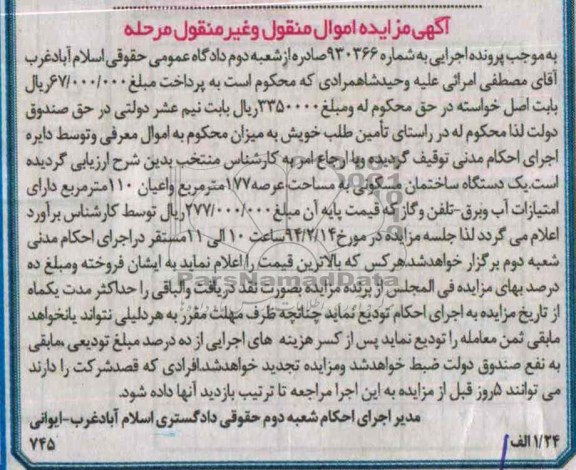 آگهی مزایده اموال منقول وغیر منقول مرحله
به موجب پرونده اجرایی به شماره ۹۳۰۳۶۶صادره ازشعبه دوم دادگاه عمومی حقوقی اسلام آبادغرب
آقای مصطفی امرائی علیه وحیدشاهمرادی که محکوم است به پرداخت مبلغ۶۷/۰۰۰/۰۰۰ریال
بابت اصل خواسته در حق محکوم له ومبلغ۳۳۵۰۰۰۰ریال بابت نیم عشر دولتی در حق صندوق
دولت لذا محکوم له در راستای تأمین طلب خویش به میزان محکوم به اموال معرفی وتوسط دایره
اجرای احکام مدنی توقیف گردیده وبا ارجاع امر به کارشناس منتخب بدین شرح ارزیابی گردیده
است.یک دستگاه ساختمان مسکونی به مساحت عرصه۱۷۷مترمربع واعیان ۱۱۰مترمربع دارای
امتیازات آب وبرق-تلفن وگاز که قیمت پایه آن مبلغ ۲۷۷/۰۰۰/۰۰۰ریال توسط کارشناس برآورد
اعلام می گردد لذا جلسه مزایده در مورخ۹۴/۲/۱۴ساعت ۱۰ الی ۱۱مستقر دراجرای احکام مدنی
شعبه دوم برگزار خواهدشد.هرکس که بالاترین قیمت را اعلام نماید به ایشان فروخته ومبلغ ده
درصد بهای مزایده فی المجلس از برنده مزایده بصورت نقد دریافت والباقی را حداکثر مدت یکماه
از تاریخ مزایده به اجرای احکام تودیع نماید چنانچه ظرف مهلت مقرر به هردلیلی نتواند یانخواهد
مابقی ثمن معامله را تودیع نماید پس از کسر هزینه های اجرایی از ده درصد مبلغ تودیعی ،مابقی
به نفع صندوق دولت ضبط خواهدشد ومزایده تجدید خواهدشد.افرادی که قصدشرکت را دارند
می توانند ۵روز قبل از مزایده به این اجرا مراجعه تا ترتیب بازدید آنها داده شود.
مدیر اجرای احکام شعبه دوم حقوقی دادگستری اسلام آبادغرب-ایوانی
۱/۲۴ الف ۷۴۵
ParsNamadData